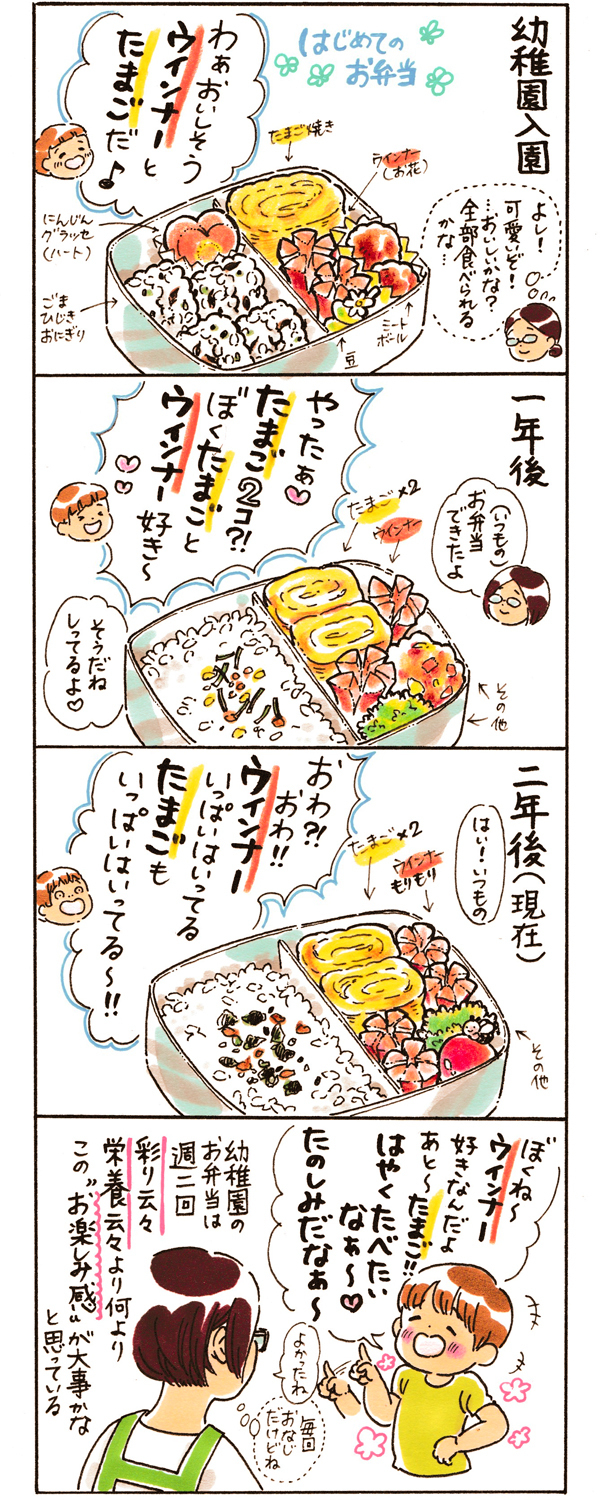 幼稚園入園
はじめての
お弁当
わぁおいしそう
ウインナーと
たまごだ♪
たまご焼き
ウィンナー
(お花)
にんじん
グラッセ
(ハート)
ごま
ひじき
おにぎり
豆
ミート
ボール
よし！
可愛いぞ！
…おいしかな？
全部食べられる
かな…
一年後
(いつもの)
お弁当
できたよ
やったぁ♡
たまご2コ?!
ぼくたまごと
ウィンナー
好き〜
たまご×2
ウィンナー
そうだね
しってるよ♡
その他
二年後(現在)
はい！いつもの
おわ?!
おわ!!
ウィンナー
いっぱいはいってる
たまごも
いっぱいはいってる〜!!
たまご×2
ウィンナー
もりもり
その他
ぼくね〜
ウィンナー
好きなんだよ
あと〜たまご!!
はやくたべたい
なぁ〜♥
たのしみだなぁ〜
よかったね
毎回
おなじ
だけどね
幼稚園の
お弁当は
週二回
彩り云々
栄養云々より何より
この"お楽しみ感"が大事かな
と思っている